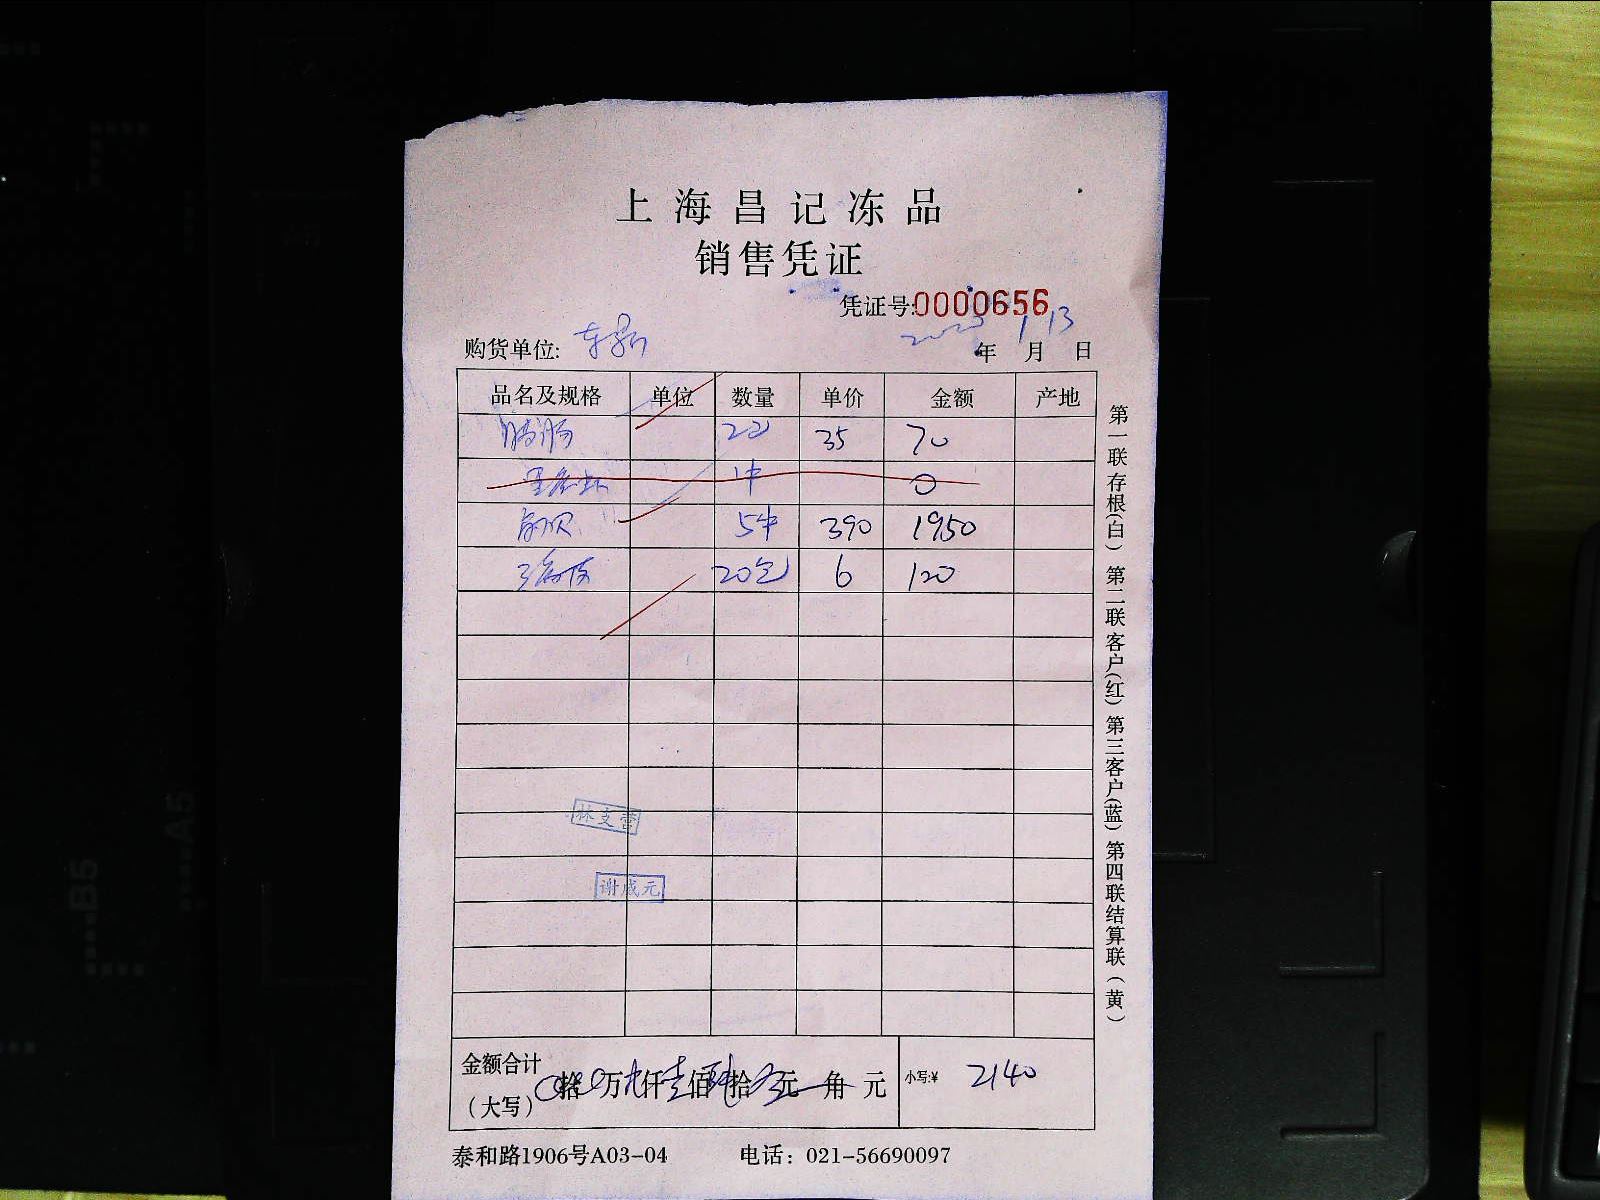 上海昌记冻品
销售凭证
凭证号:0000656
购货单位: 年 月 日
2023 1 13
品名及规格 单位 数量 单价 金额 产地
35 70
0
5件 390 1950
20包 6 120
林支营
谢成元
金额合计
(大写) 拾 万 仟 壹 佰 肆 拾 元 角 元 小写:¥ 2140
泰和路1906号A03-04 电话：021-56690097
第一联存根(白) 第二联客户(红) 第三客户(蓝) 第四联结算联(黄)
B5
A5